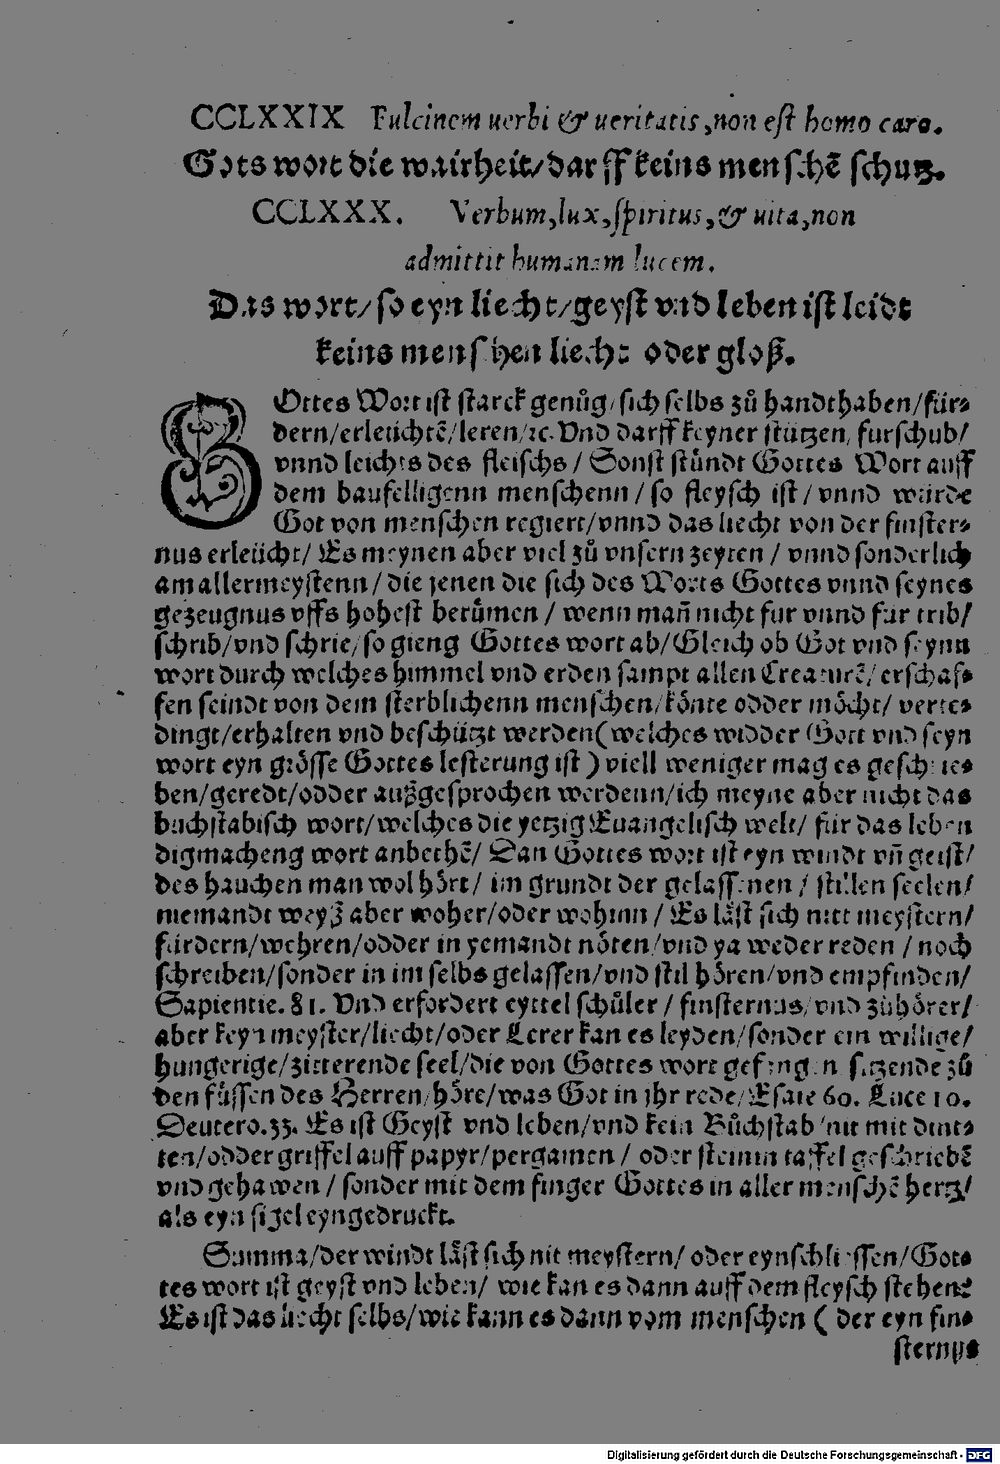 CCLXXIX Fulcinem uerbi & ueritatis, non est homo caro.
Gots wort die wairheit/darff keins menschē schutz.
CCLXXX. Verbum, lux, spiritus, & uita, non
admittit humanam lucem.
Das wort/so eyn liecht/geyst vnd leben ist leidt
keins menschen liecht oder gloß.
GOttes Wort ist starck genůg/sich selbs zů handthaben/für-
dern/erleüchtē/leren/ꝛc. Vnd darff keyner stützen/furschub/
vnnd leichts des fleischs/Sonst stündt Gottes Wort auff
dem baufelligenn menschenn/so fleysch ist/vnnd würde
Got von menschen regiert/vnnd das liecht von der finster-
nus erleücht/Es meynen aber viel zů vnsern zeyten/vnnd sonderlich
am allermeystenn/die jenen die sich des Worts Gottes vnnd seynes
gezeugnus vffs hohest berümen/wenn mañ nicht fur vnnd fur trib/
schrib/vnd schrie/so gieng Gottes wort ab/Gleich ob Got vnd seynn
wort durch welches himmel vnd erden sampt allen Creaturē/erschaf-
fen seindt von dem sterblichenn menschen/könte odder möcht/vertes-
dingt/erhalten vnd beschützt werden(welches widder Gott vnd seyn
wort eyn grösse Gottes lesterung ist) viell weniger mag es geschries
ben/geredt/odder außgesprochen werdenn/ich meyne aber nicht das
buchstabisch wort/welches die yetzig Euangelisch welt/für das leben
digmacheng wort anbethē/Dan Gottes wort ist eyn windt vñ geist/
des hauchen man wol hört/im grundt der gelassenen/stillen seelen/
niemandt weyß aber woher/oder wohinn/Es läst sich nitt meystern/
fürdern/wehren/odder in yemandt nöten/vnd ya weder reden/noch
schreiben/sonder in im selbs gelassen/vnd stil hören/vnd empfinden/
Sapientie. 81. Vnd erfordert eyttel schüler/finsternus/vnd zühörer/
aber keyn meyster/liecht/oder Lerer kan es leyden/sonder ein willige/
hungerige/zitterende seel/die von Gottes wort gefangen sitzende zů
den füssen des Herren/höre/was Got in jhr rede/Esaie 60. Luce 10.
Deutero. 33. Es ist Geyst vnd leben/vnd kein Bůchstab/nit mit dint-
ten/odder griffel auff papyr/pergamen/oder steinin taffel geschriebē
vnd gehawen/sonder mit dem finger Gottes in aller menschē hertz/
als eyn sigel eyngedruckt.
Summa/der windt läst sich nit meystern/oder eynschliessen/Got-
tes wort ist geyst vnd leben/wie kan es dann auff dem fleysch stehen?
Es ist das liecht selbs/wie kann es dann vom menschen (der eyn fin-
sternus
Digitalisierung gefördert durch die Deutsche Forschungsgemeinschaft - DFG